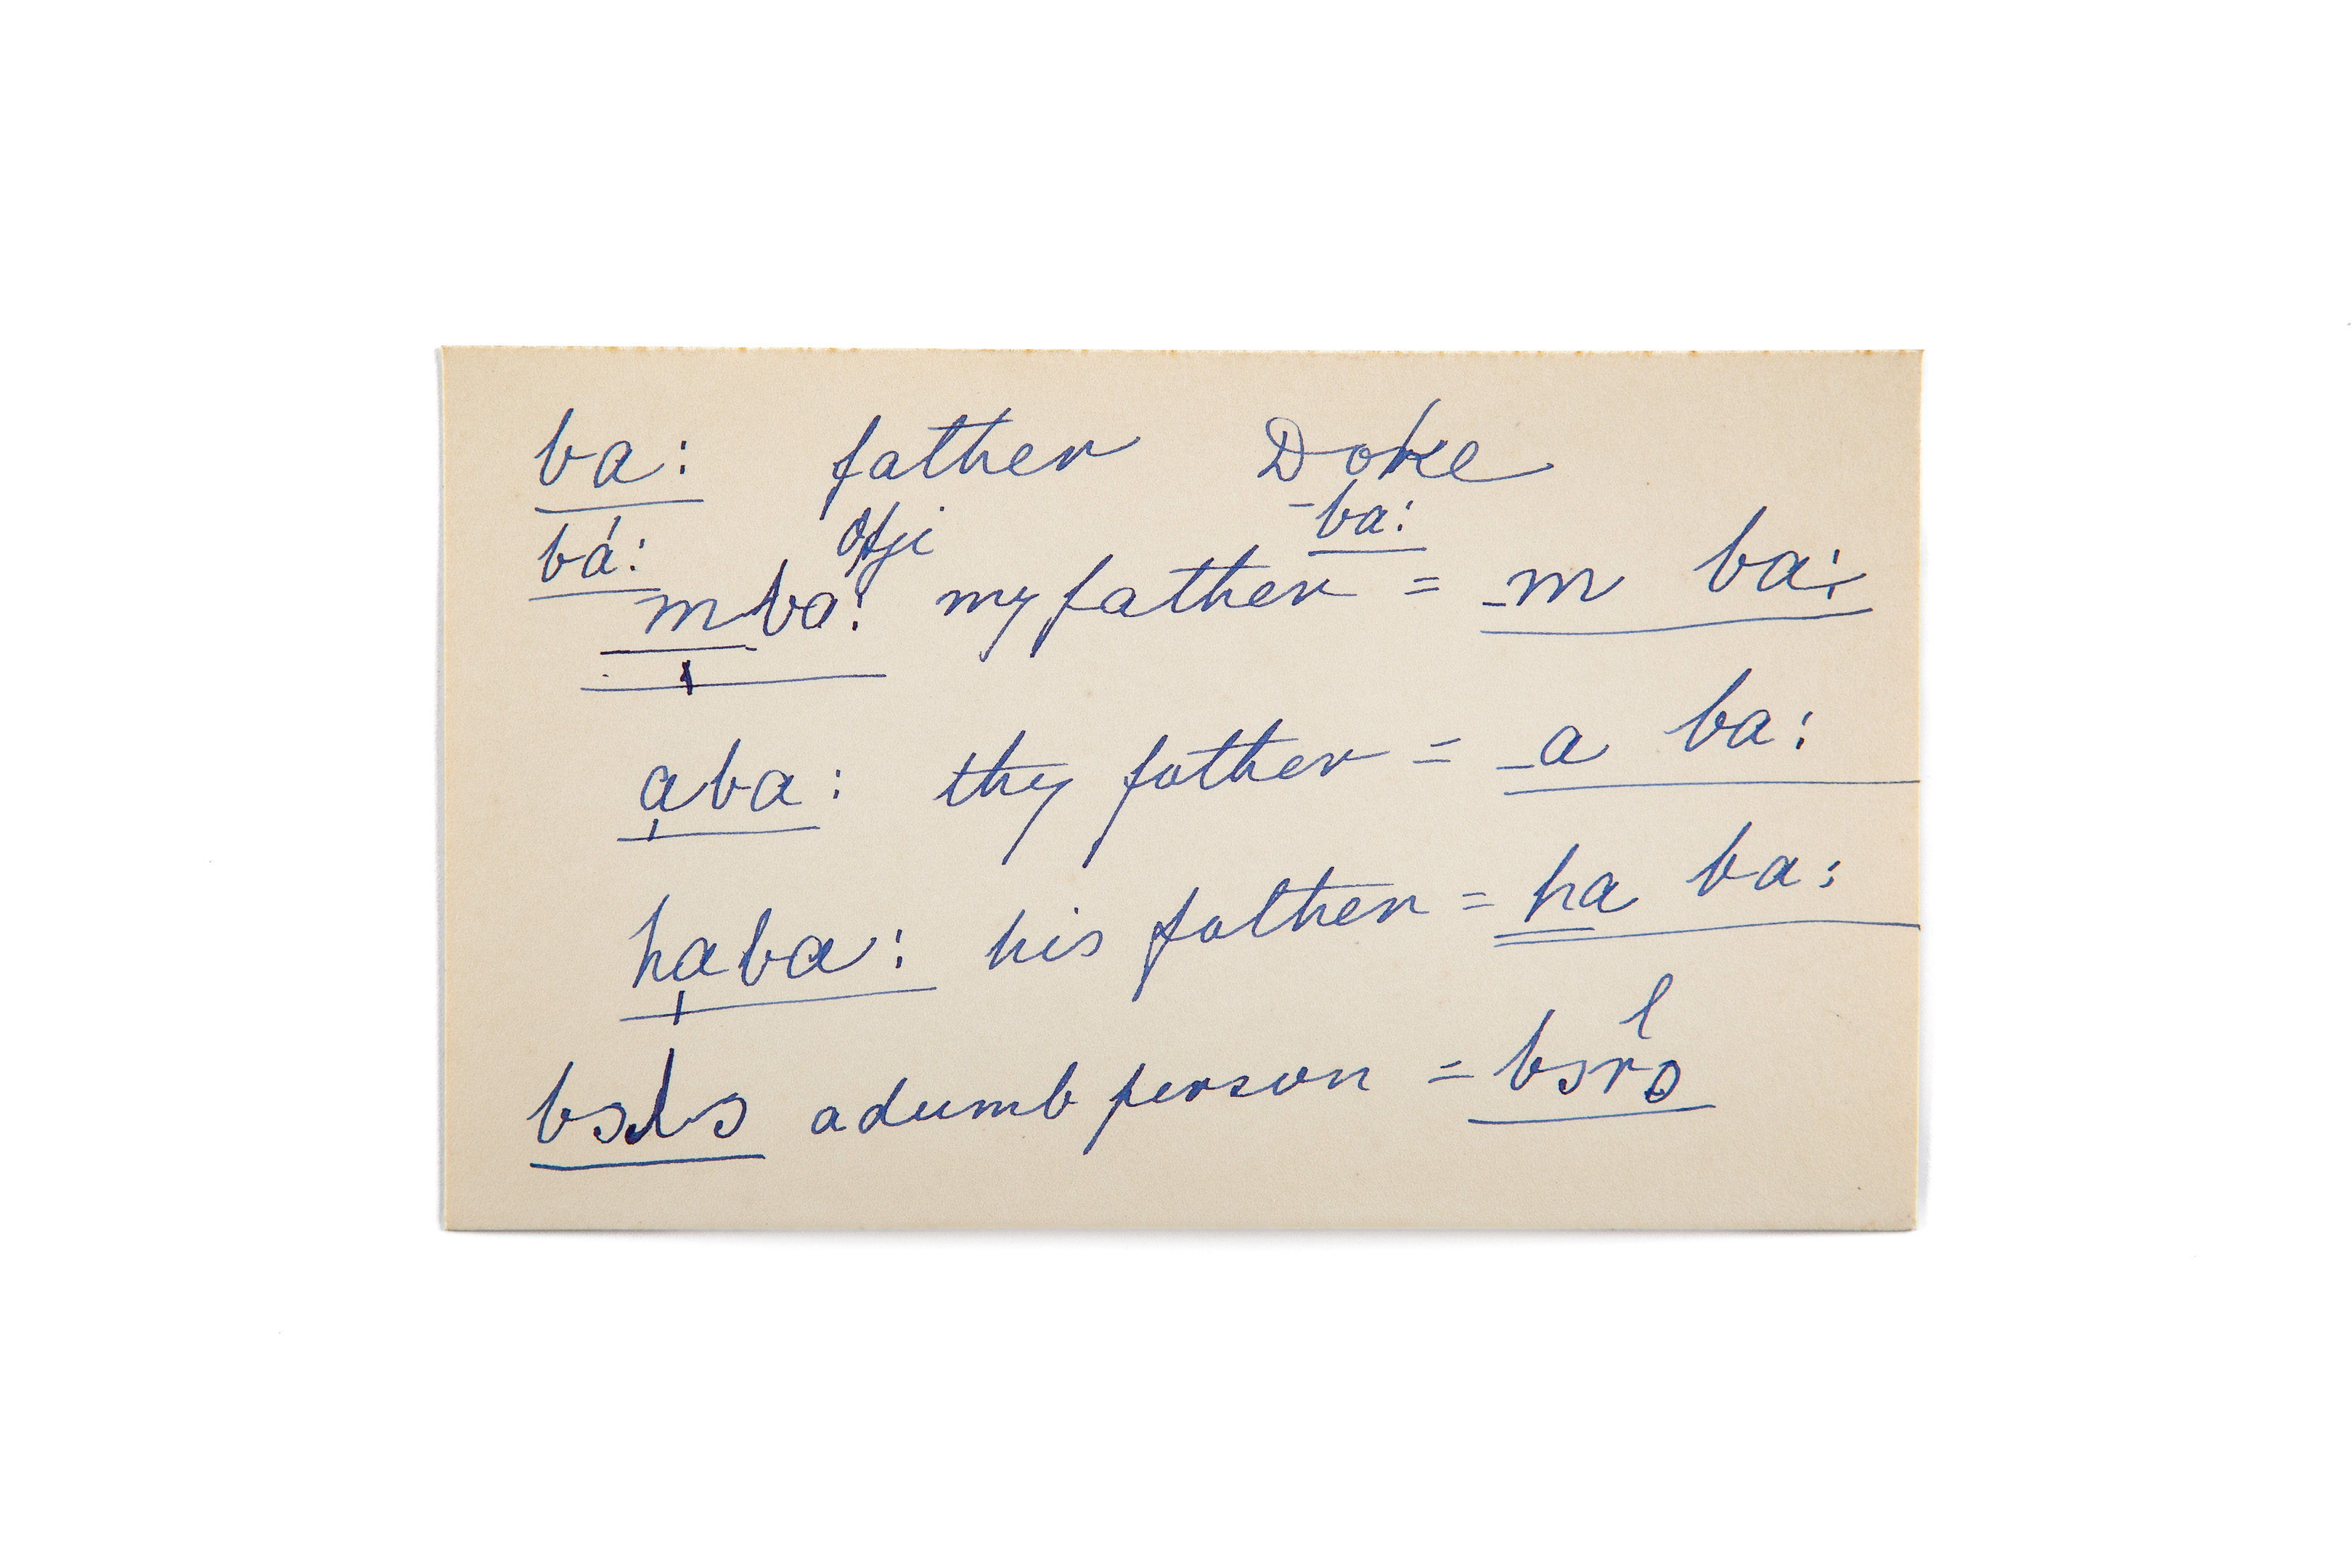 ba: father Doke
bá: Otji -ba:
mba: my father = m ba:
ạba: thy father = a ba:
hạba: his father = ha ba:
bɔlɔ a dumb person = bɔrɔ l